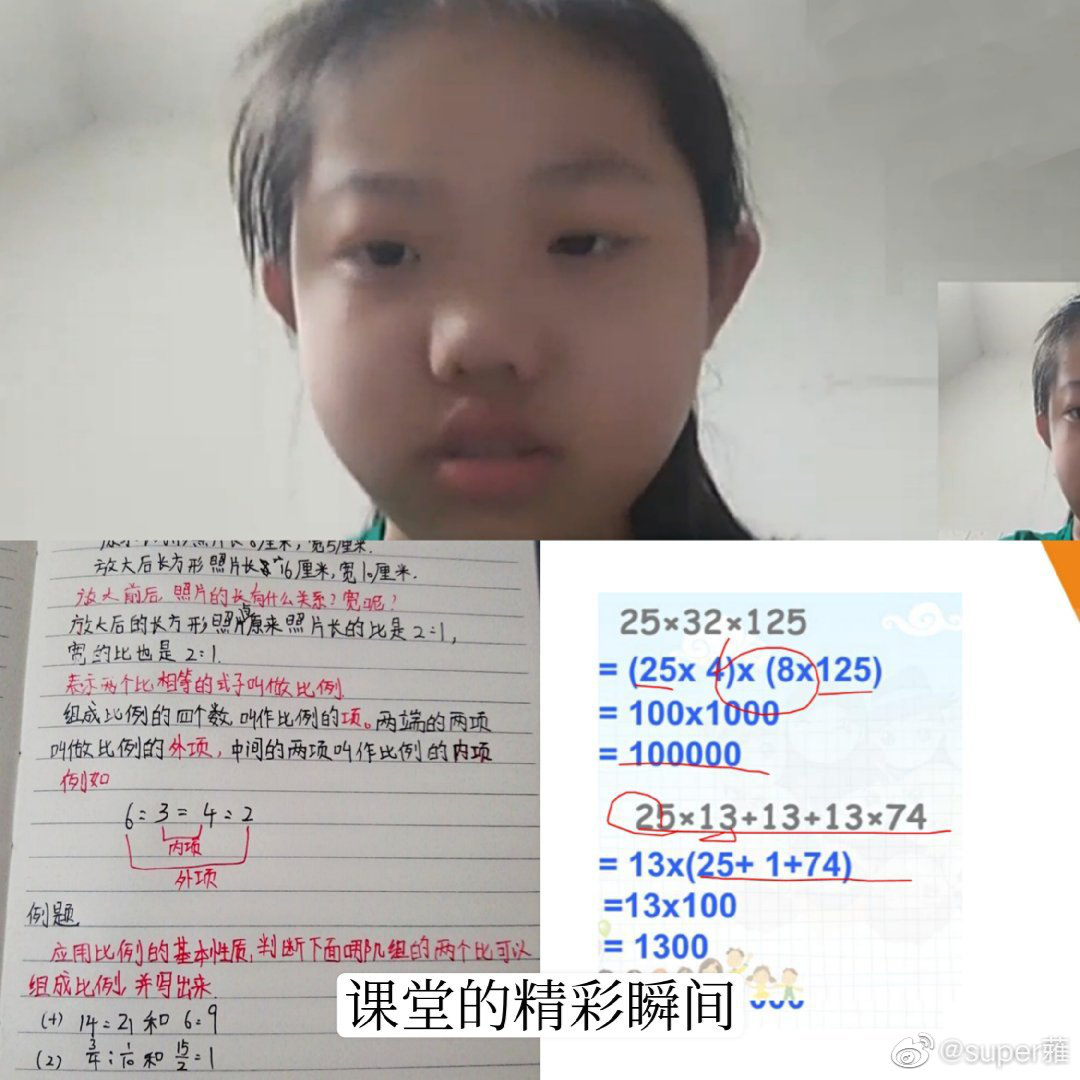 放大后长方形照片长是16厘米,宽10厘米.
放大前后,照片的长有什么关系?宽呢?
放大后的长方形照片与原来照片长的比是2:1,
宽的比也是2:1.
表示两个比相等的式子叫做比例.
组成比例的四个数,叫作比例的项。两端的两项
叫做比例的外项,中间的两项叫作比例的内项
例如
6:3=4:2
内项
外项
例题
应用比例的基本性质,判断下面哪几组的两个比可以
组成比例,并写出来.
(1) 14:21 和 6:9
(2) 3/4:1/10 和 15/2:1
25×32×125
= (25x 4)x (8x125)
= 100x1000
= 100000
25×13+13+13×74
= 13x(25+ 1+74)
=13x100
= 1300
课堂的精彩瞬间
@super蕹